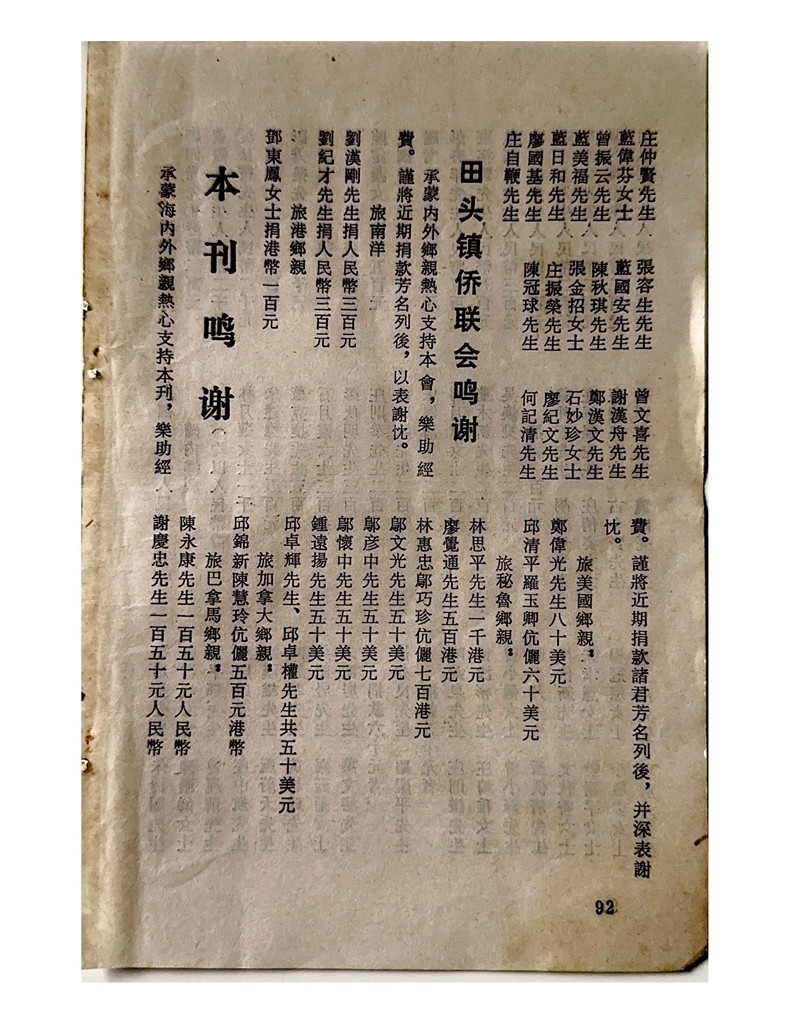 庄仲賢先生 張容生先生 曾文喜先生
藍偉芬女士 藍國安先生 謝漢舟先生
曾振云先生 陳秋琪先生 鄭漢文先生
藍美福先生 張金招女士 石妙珍女士
藍日和先生 庄振榮先生 廖紀文先生
廖國基先生 陳冠球先生 何記清先生
庄自鞭先生
田头镇侨联会鸣谢
承蒙内外鄉親熱心支持本會，樂助經
費。謹將近期捐款芳名列後，以表謝忱。
旅南洋
劉漢剛先生捐人民幣三百元
劉紀才先生捐人民幣三百元
旅港鄉親
鄧東鳳女士捐港幣一百元
本刊鸣谢
承蒙海内外鄉親熱心支持本刊，樂助經
費。謹將近期捐款諸君芳名列後，并深表謝
忱。
旅美國鄉親：
鄭偉光先生八十美元
邱清平羅玉卿伉儷六十美元
旅秘魯鄉親：
林思平先生一千港元
廖覺通先生五百港元
林惠忠鄔巧珍伉儷七百港元
鄔文光先生五十美元
鄔彦中先生五十美元
鄔懷中先生五十美元
鍾遠揚先生五十美元
邱卓輝先生、邱卓權先生共五十美元
旅加拿大鄉親：
邱錦新陳慧玲伉儷五百元港幣
旅巴拿馬鄉親：
陳永康先生一百五十元人民幣
謝慶忠先生一百五十元人民幣
92